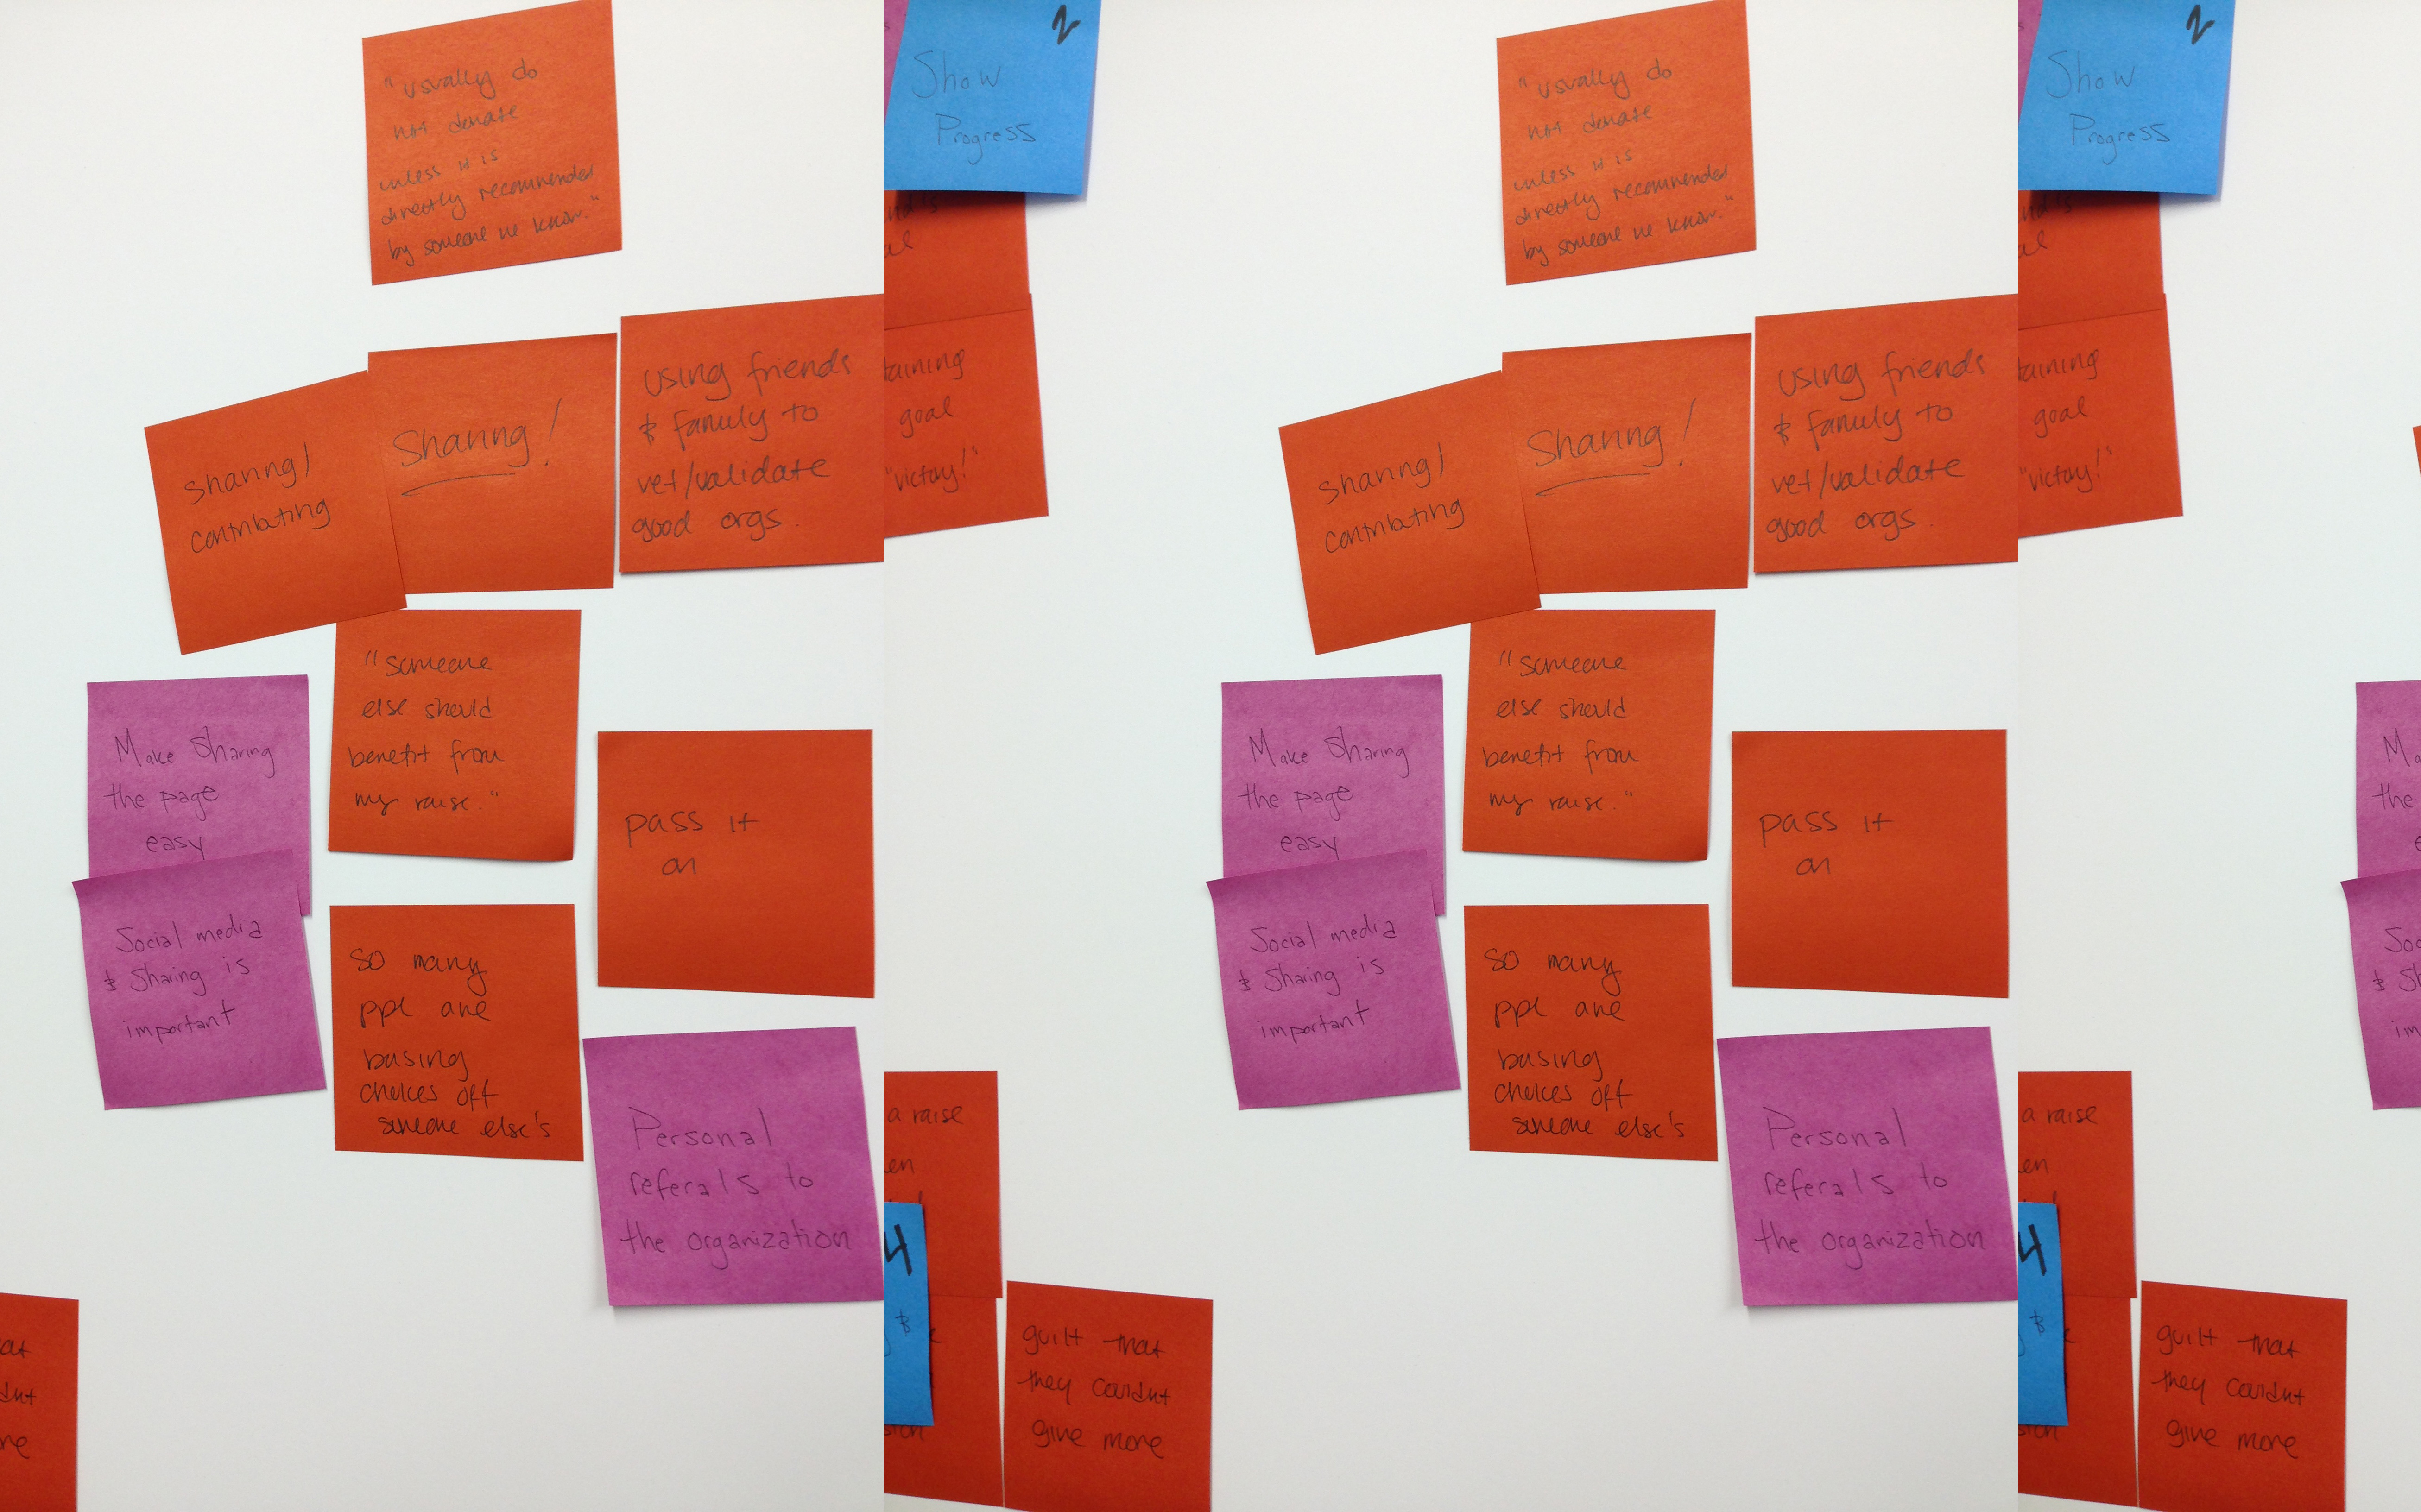 "usually do
not donate
unless it is
directly recommended
by someone we know."
2
Show
Progress
sharing/
contributing
Sharing!
using friends
& family to
vet/validate
good orgs.
goal
"victory!"
"someone
else should
benefit from
my raise."
Make Sharing
the page
easy
Social media
& Sharing is
important
pass it
on
so many
ppl are
basing
choices off
someone else's
Personal
referals to
the organization
a raise
4
$
guilt that
they couldnt
give more
"usually do
not donate
unless it is
directly recommended
by someone we know."
2
Show
Progress
sharing/
contributing
Sharing!
using friends
& family to
vet/validate
good orgs.
goal
"victory!"
"someone
else should
benefit from
my raise."
Make Sharing
the page
easy
Social media
& Sharing is
important
pass it
on
so many
ppl are
basing
choices off
someone else's
Personal
referals to
the organization
a raise
4
$
guilt that
they couldnt
give more
the